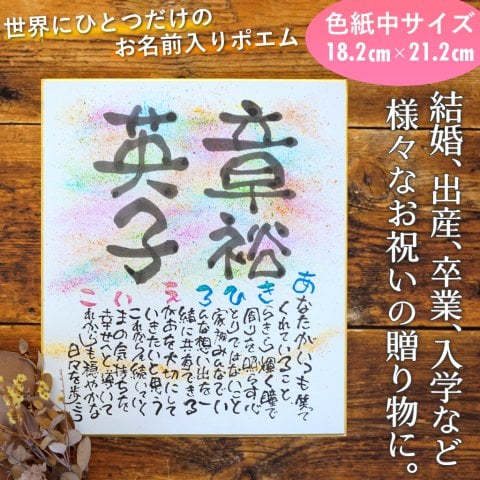 世界にひとつだけの
お名前入りポエム
色紙中サイズ
18.2cm×21.2cm
結婚、出産、卒業、入学など
様々なお祝いの贈り物に。
章裕
英子
あなたがいつも笑って
くれていること
きらきら輝く瞳で
周りを照らす心
ひとりではないこと
家族みんなでい
ろんな想い出を一
緒に共有できる
えがおを大切にして
いきたいと思う
これから続いていく
いまの気持ちを
幸せへと導いて
これからも穏やかな
日々を歩こう